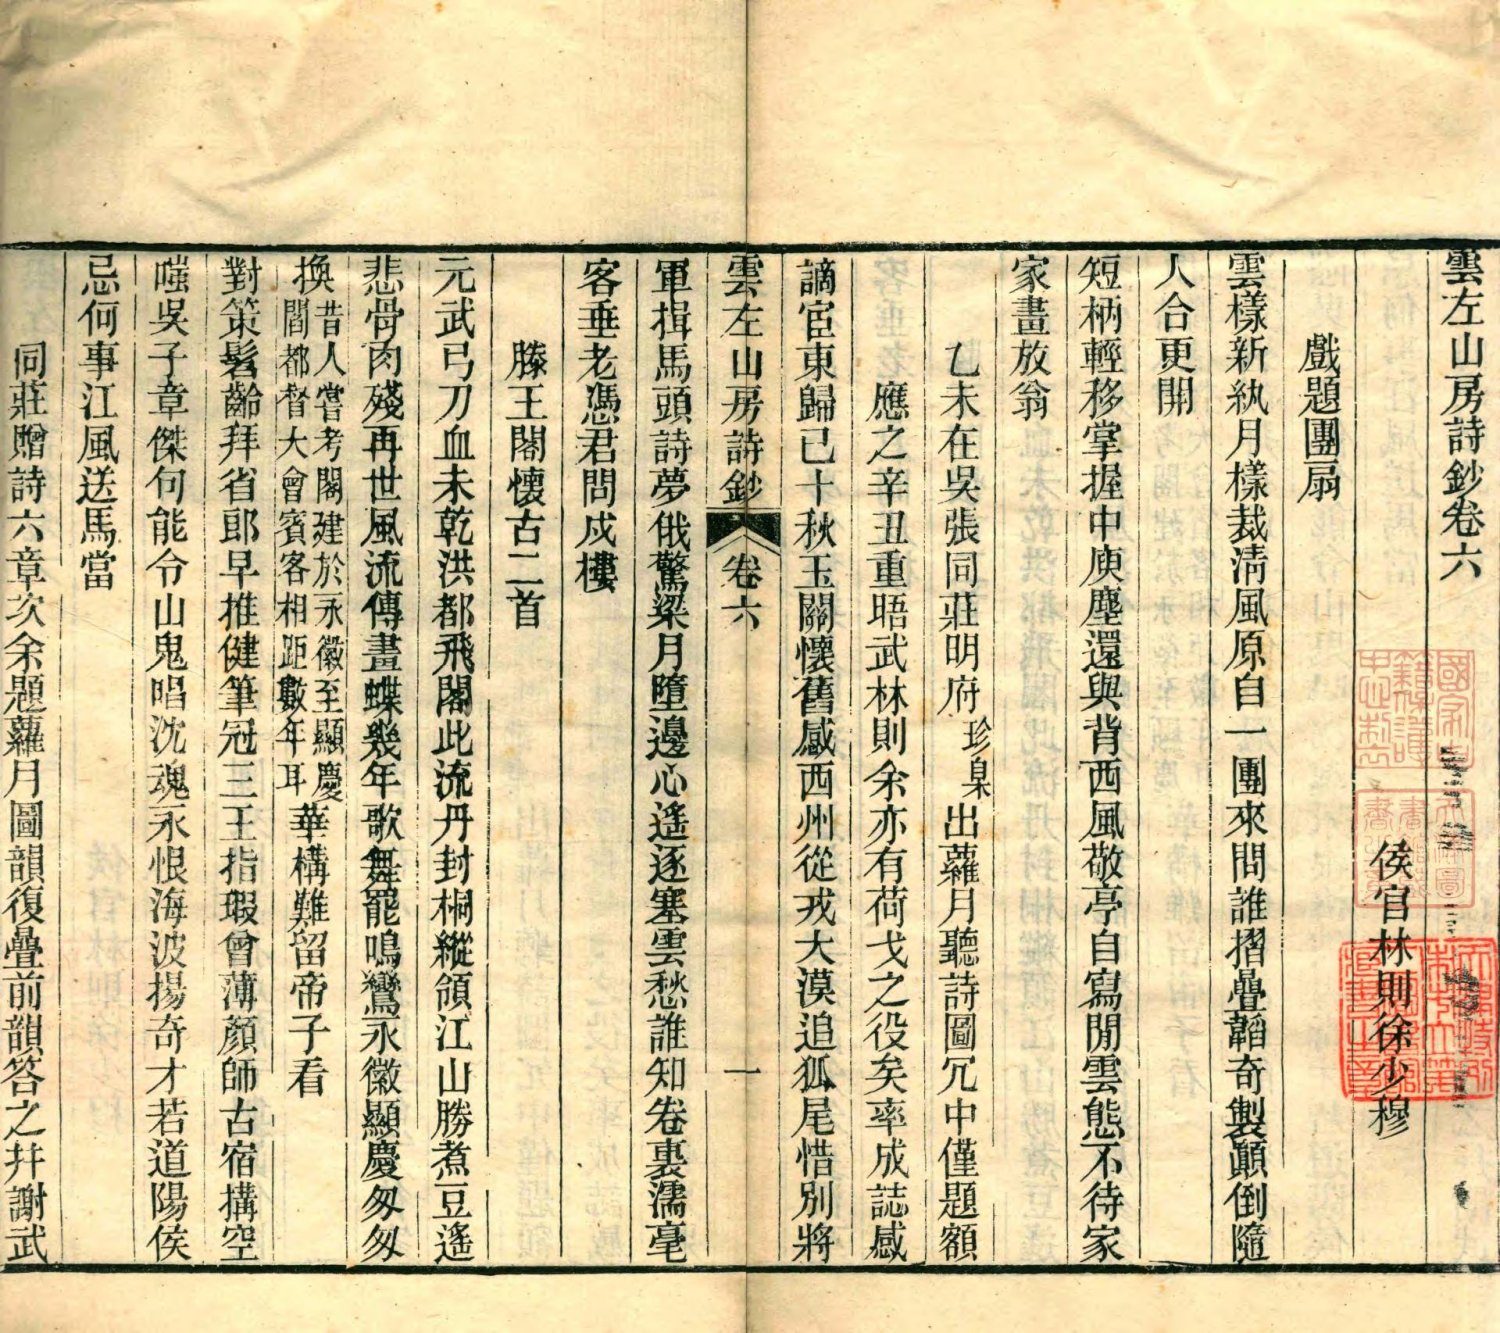 雲左山房詩鈔卷六
侯官林則徐少穆
戲題團扇
雲樣新紈月樣裁清風原自一團來問誰摺疊韜奇製顚倒隨
人合更開
短柄輕移掌握中庾塵還與背西風敬亭自寫閒雲態不待家
家畫放翁
乙未在吳張同莊明府珍臬出蘿月聽詩圖冗中僅題額
應之辛丑重晤武林則余亦有荷戈之役矣率成誌感
謫宦東歸已十秋玉關懷舊感西州從戎大漠追狐尾惜別將
雲左山房詩鈔 卷六 一
軍揖馬頭詩夢俄驚梁月墮邊心遙逐塞雲愁誰知卷裏濡毫
客垂老憑君問戍樓
滕王閣懷古二首
元武弓刀血未乾洪都飛閣此流丹封桐縱領江山勝煮豆遙
悲骨肉殘再世風流傳畫蝶幾年歌舞罷鳴鸞永徽顯慶匆匆
換昔人嘗考閣建於永徽至顯慶閻都督大會賓客相距數年耳華構難留帝子看
對策髫齡拜省郎早推健筆冠三王指瑕曾薄顏師古宿搆空
嗤吳子章傑句能令山鬼唱沈魂永恨海波揚奇才若道陽侯
忌何事江風送馬當
同莊贈詩六章次余題蘿月圖韻復疊前韻答之幷謝武